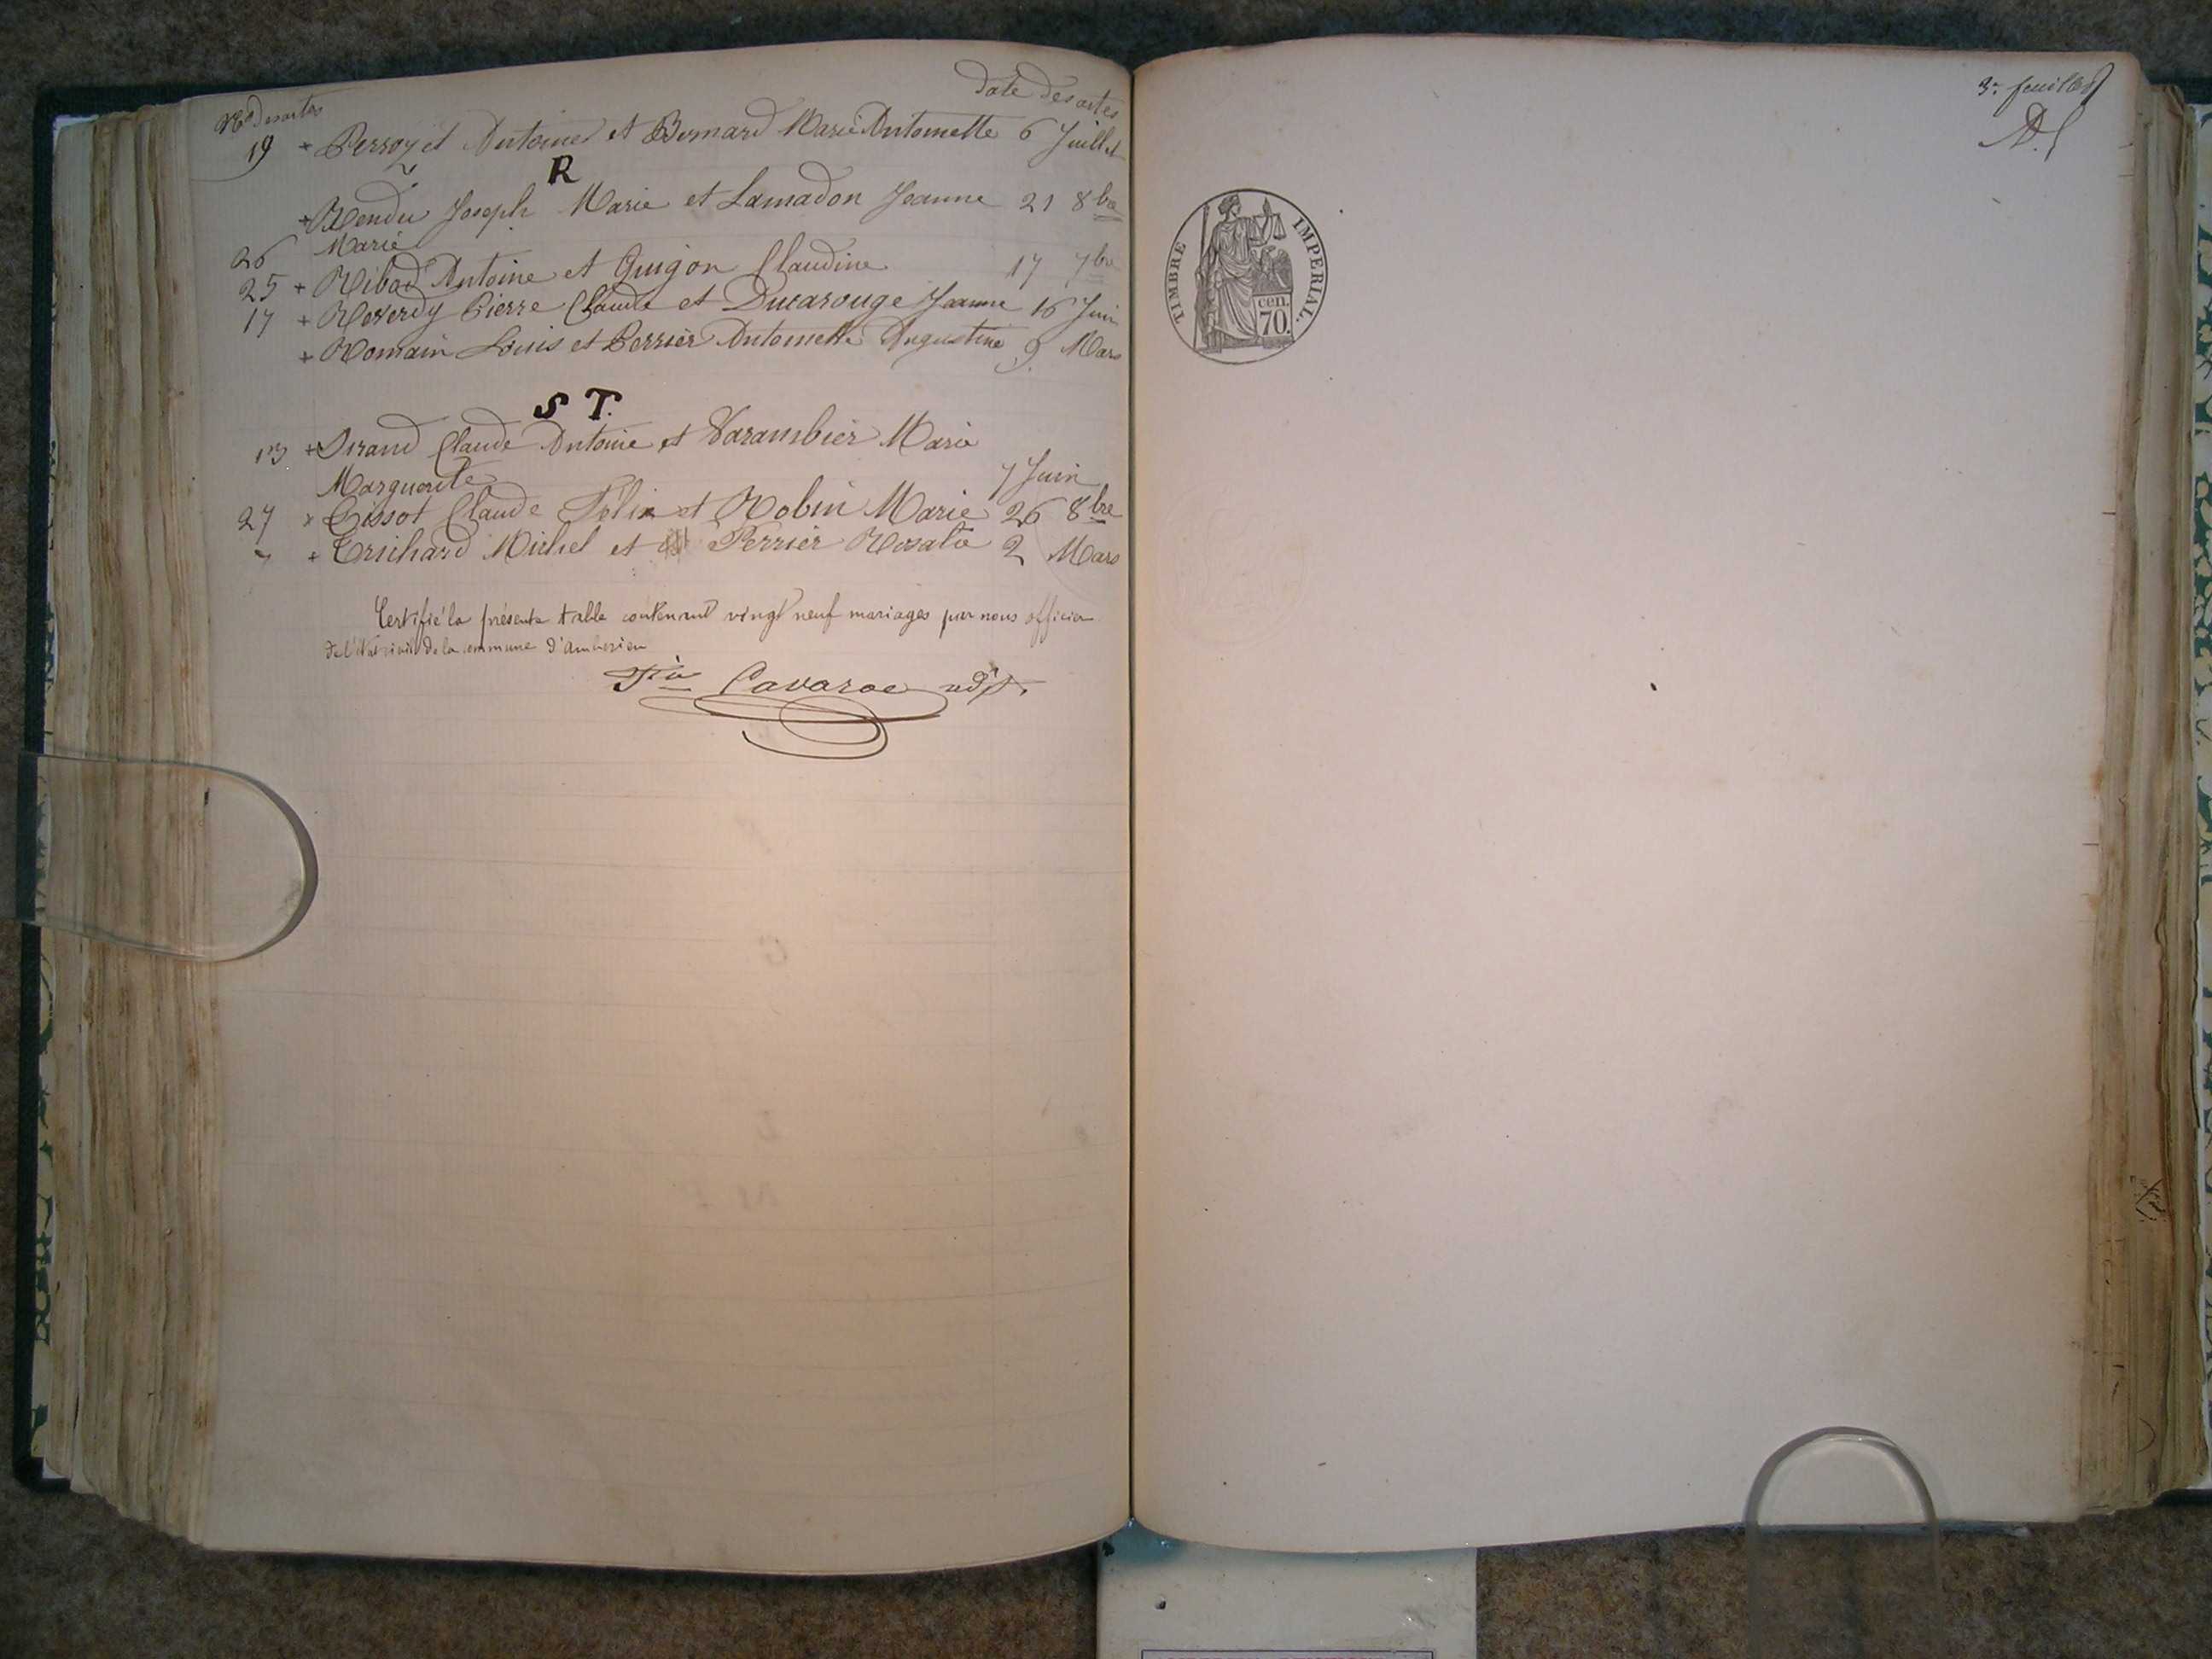 Nos des actes
date des actes
19 + Perroyet Antoine et Bernard Marie Antoinette 6 Juillet
R
+ Rendu Joseph Marie et Lamadon Jeanne 21 8bre
26 Marie
25 + Ribod Antoine et Guigon Claudine 17 7bre
17 + Reverdy Pierre Claude et Ducarouge Jeanne 16 Juin
+ Romain Louis et Perrier Antoinette Augustine 9 Mars
S T.
13 + Sirand Claude Antoine et Varambier Marie
Marguerite 7 Juin
27 + Tissot Claude Félix et Robin Marie 26 8bre
+ Truchard Michel et Perrier Rosalie 2 Mars
Certifié la présente table contenant vingt neuf mariages par nous officier
de l'état civil de la commune d'Ambérieu
Cavaroc adjt.
3e feuillet
TIMBRE IMPERIAL.
cen.
70.